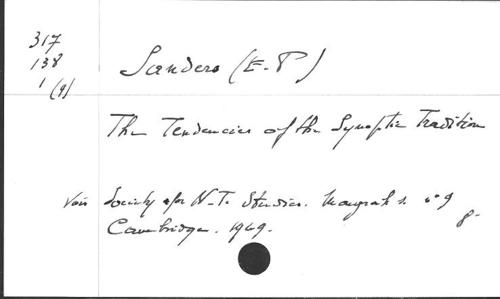 317
138
1 (9)
Sanders (E.P)
The Tendencies of the Synoptic Tradition
Voir Society for N-T. Studies. Monograph n° 9
8-
Cambridge. 1969.